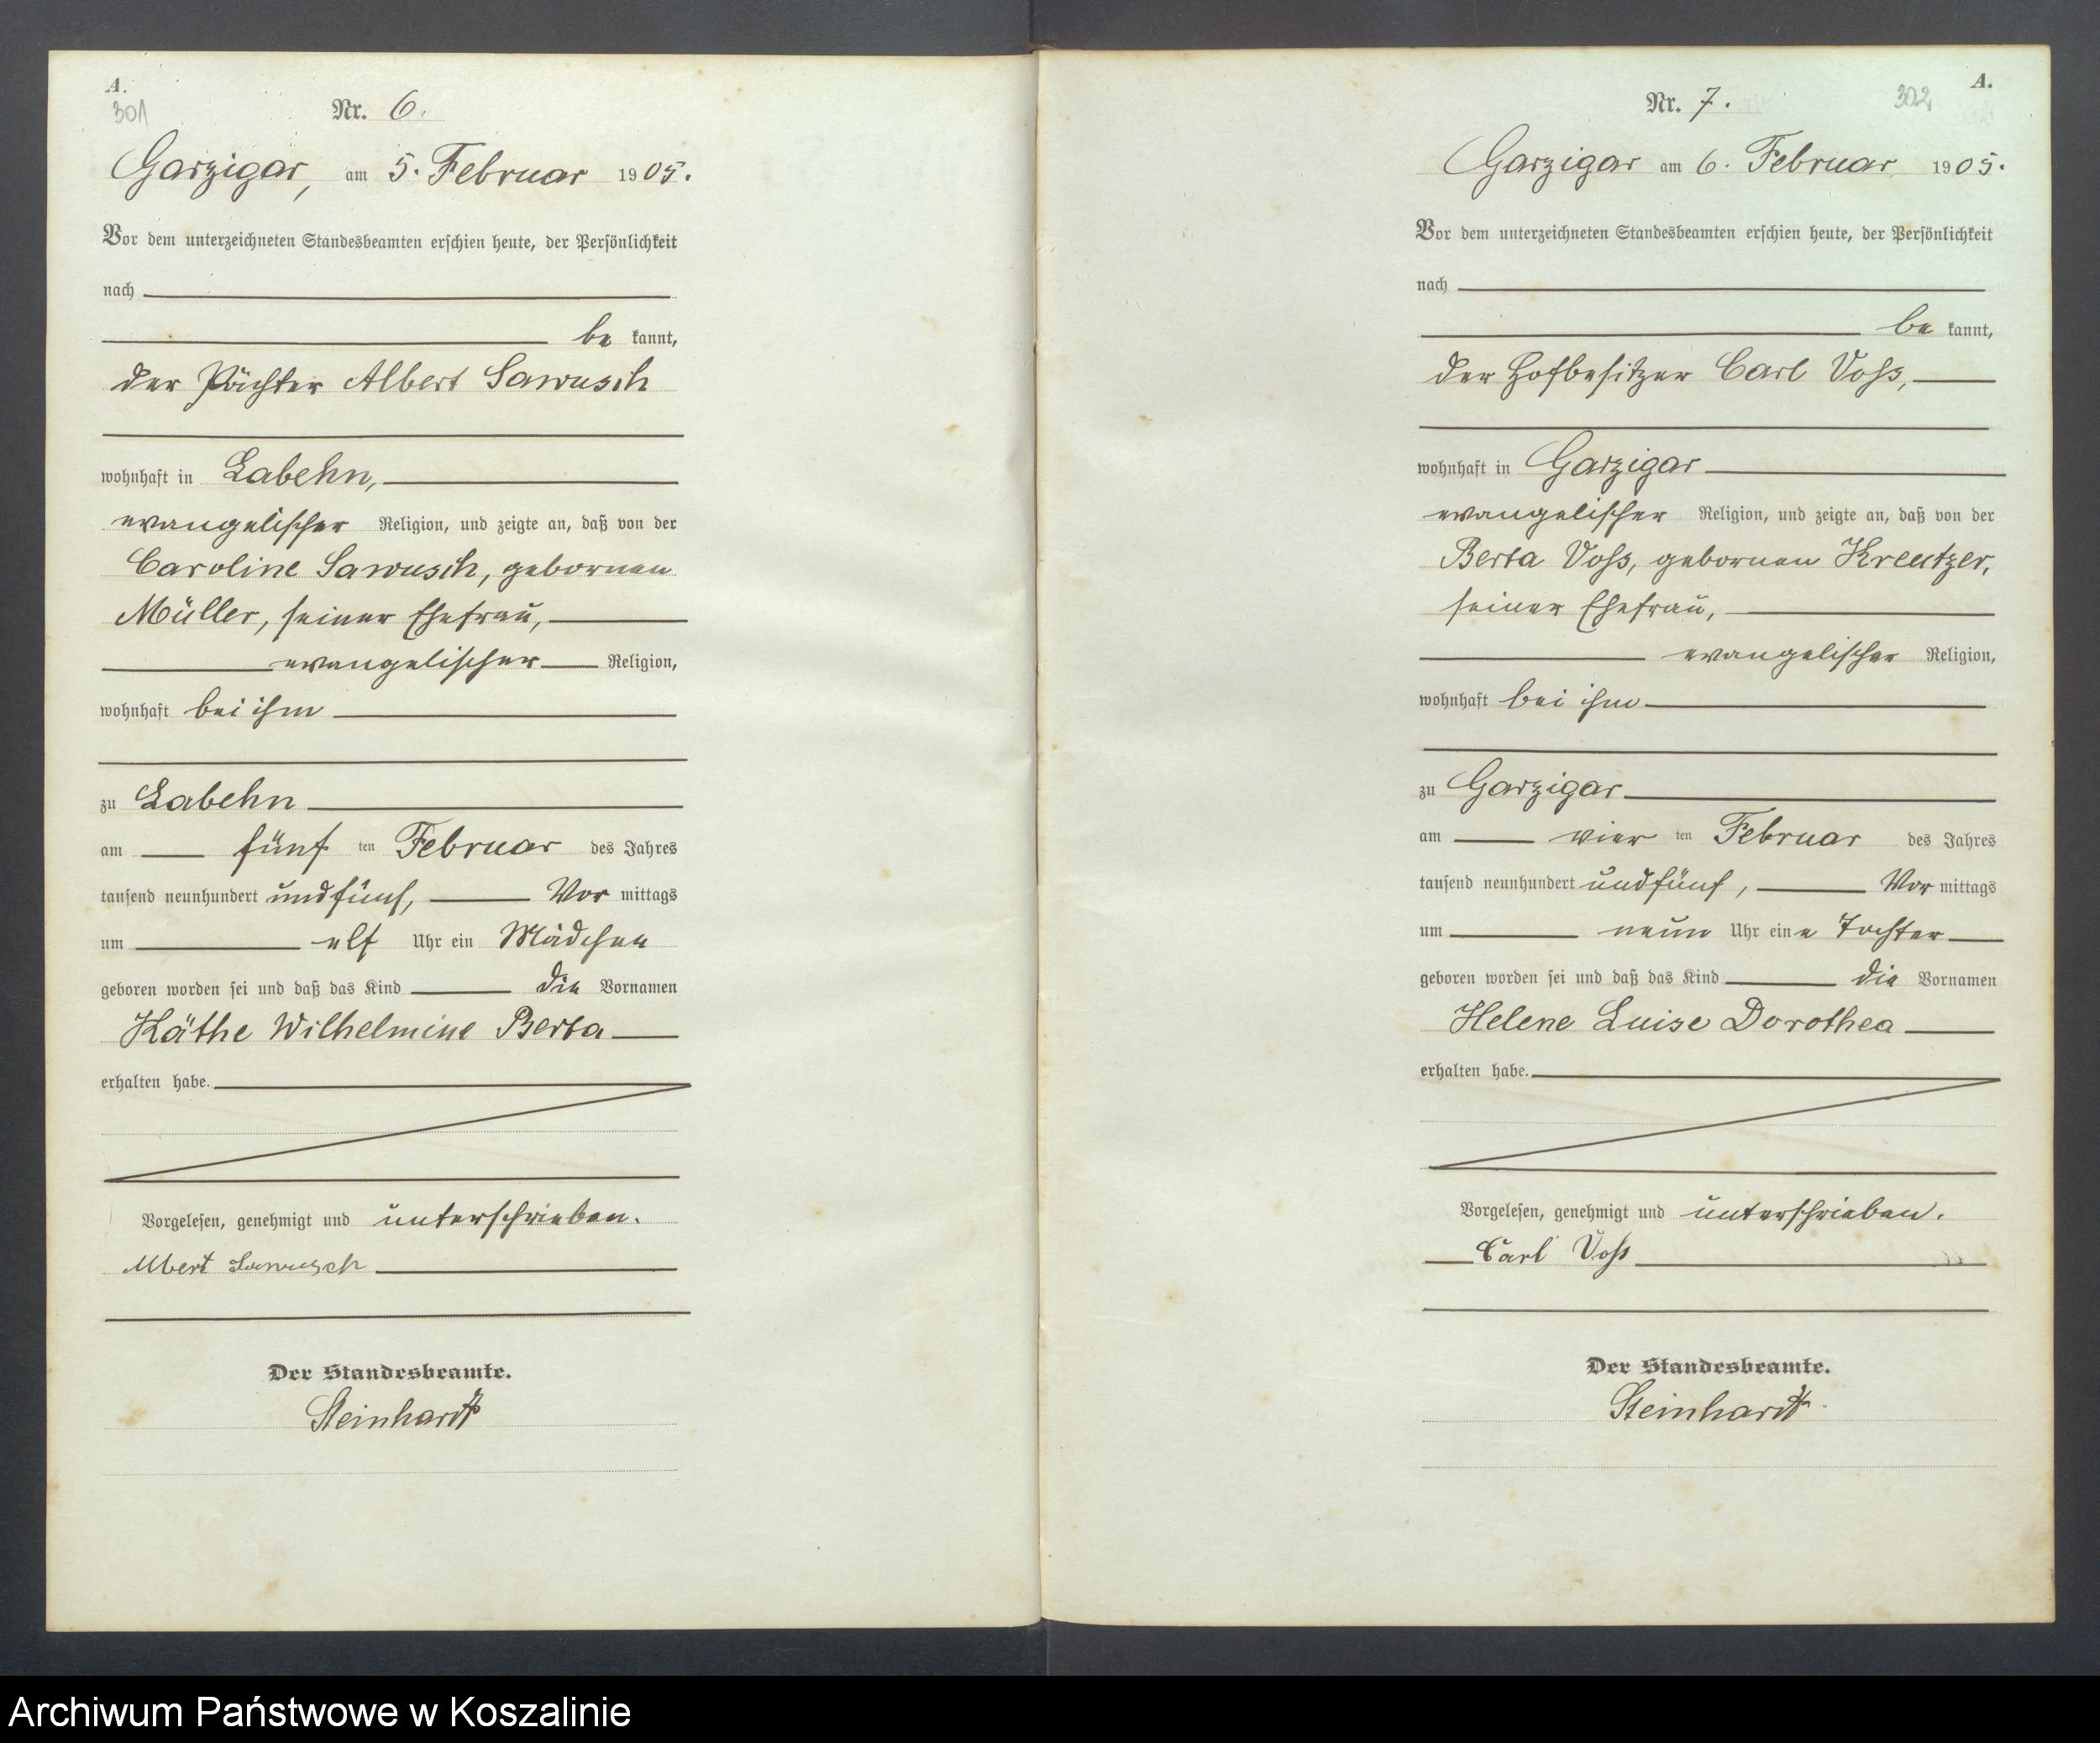 A.
301
Nr. 6.
Garzigar, am 5. Februar 1905.
Vor dem unterzeichneten Standesbeamten erschien heute, der Persönlichkeit
nach
be kannt,
der Pächter Albert Sawusch
wohnhaft in Labehn,
evangelischer Religion, und zeigte an, daß von der
Caroline Sawusch, gebornen
Müller, seiner Ehefrau,
evangelischer Religion,
wohnhaft bei ihm
zu Labehn
am fünf ten Februar des Jahres
tausend neunhundert und fünf, Vor mittags
um elf Uhr ein Mädchen
geboren worden sei und daß das Kind die Vornamen
Käthe Wilhelmine Berta
erhalten habe.
Vorgelesen, genehmigt und unterschrieben.
Albert Sawusch
Der Standesbeamte.
Steinhardt
A.
302
Nr. 7.
Garzigar am 6. Februar 1905.
Vor dem unterzeichneten Standesbeamten erschien heute, der Persönlichkeit
nach
be kannt,
der Hofbesitzer Carl Voß,
wohnhaft in Garzigar
evangelischer Religion, und zeigte an, daß von der
Berta Voß, gebornen Kreutzer,
seiner Ehefrau,
evangelischer Religion,
wohnhaft bei ihm
zu Garzigar
am vier ten Februar des Jahres
tausend neunhundert und fünf, Vor mittags
um neun Uhr eine Tochter
geboren worden sei und daß das Kind die Vornamen
Helene Luise Dorothea
erhalten habe.
Vorgelesen, genehmigt und unterschrieben.
Carl Voß
Der Standesbeamte.
Steinhardt
Archiwum Państwowe w Koszalinie